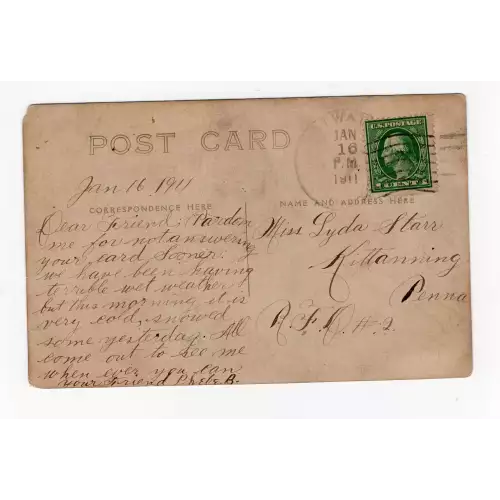 POST CARD
Jan 16 1911
CORRESPONDENCE HERE
Dear Friend: Pardon
me for not answering
your card sooner.
we have been having
terrible wet weather
but this morning it is
very cold, snowed
some yesterday. All
come out to see me
when ever you can
your Friend B.
JAN
16
P.M.
1911
U.S. POSTAGE
CENT
NAME AND ADDRESS HERE
Miss Lyda Starr
Kittanning
Penna
R.F.D. #2